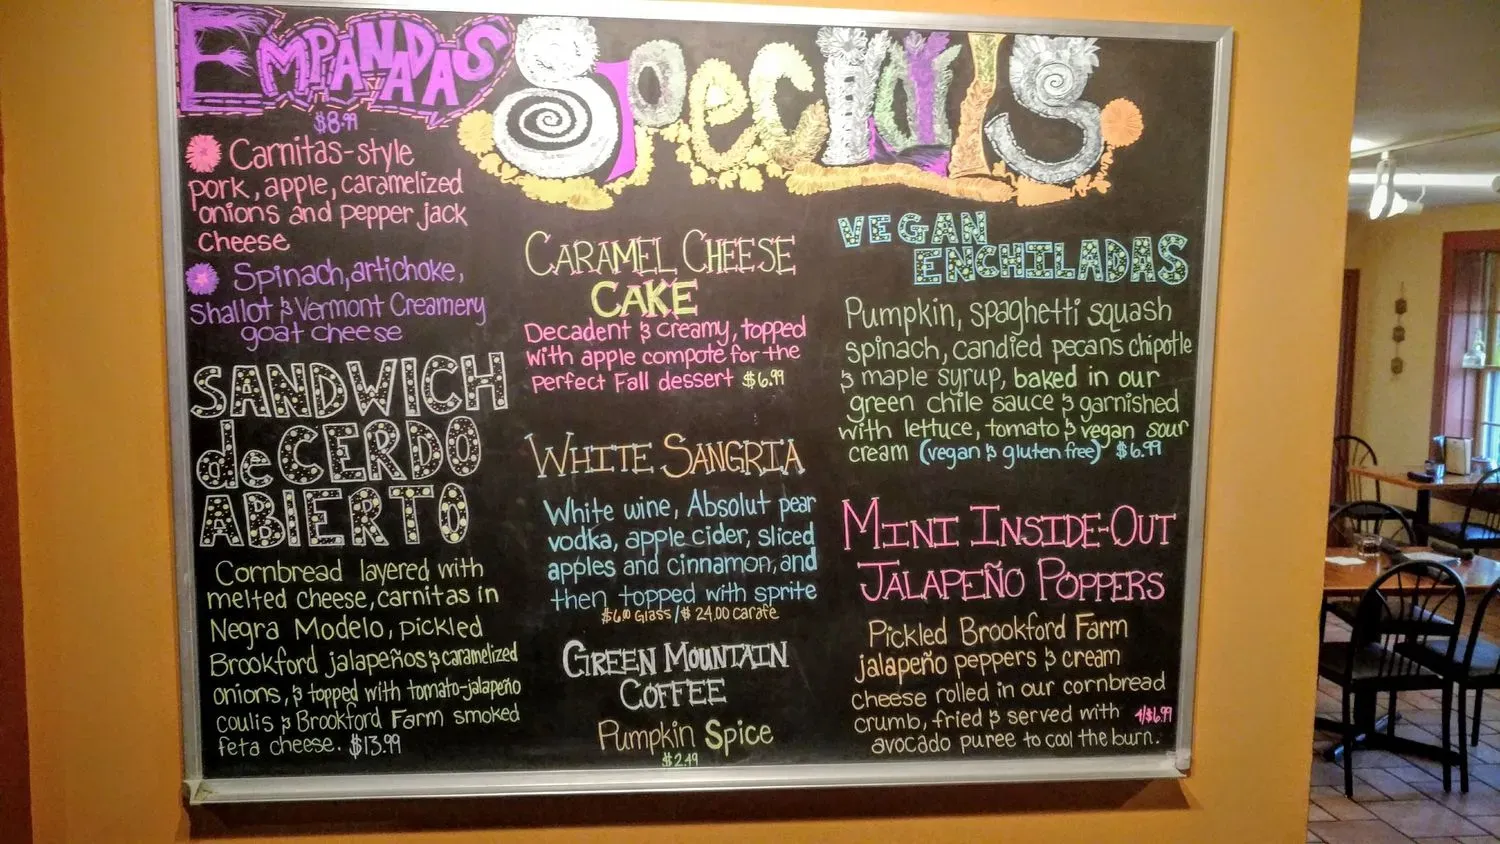 EMPANADAS
$8.99
Carnitas-style
pork, apple, caramelized
onions and pepper jack
cheese
Spinach, artichoke,
shallot & Vermont Creamery
goat cheese
SANDWICH
de CERDO
ABIERTO
Cornbread layered with
melted cheese, carnitas in
Negra Modelo, pickled
Brookford jalapeños & caramelized
onions, & topped with tomato-jalapeño
coulis & Brookford Farm smoked
feta cheese. $13.99
Specials
CARAMEL CHEESE
CAKE
Decadent & creamy, topped
with apple compote for the
perfect Fall dessert $6.99
WHITE SANGRIA
White wine, Absolut pear
vodka, apple cider, sliced
apples and cinnamon, and
then topped with sprite
$6.00 Glass / $24.00 carafe
GREEN MOUNTAIN
COFFEE
Pumpkin Spice
$2.49
VEGAN
ENCHILADAS
Pumpkin, spaghetti squash
spinach, candied pecans chipotle
& maple syrup, baked in our
green chile sauce & garnished
with lettuce, tomato & vegan sour
cream (vegan & gluten free) $6.99
MINI INSIDE-OUT
JALAPEÑO POPPERS
Pickled Brookford Farm
jalapeño peppers & cream
cheese rolled in our cornbread
crumb, fried & served with 4/$6.99
avocado puree to cool the burn.